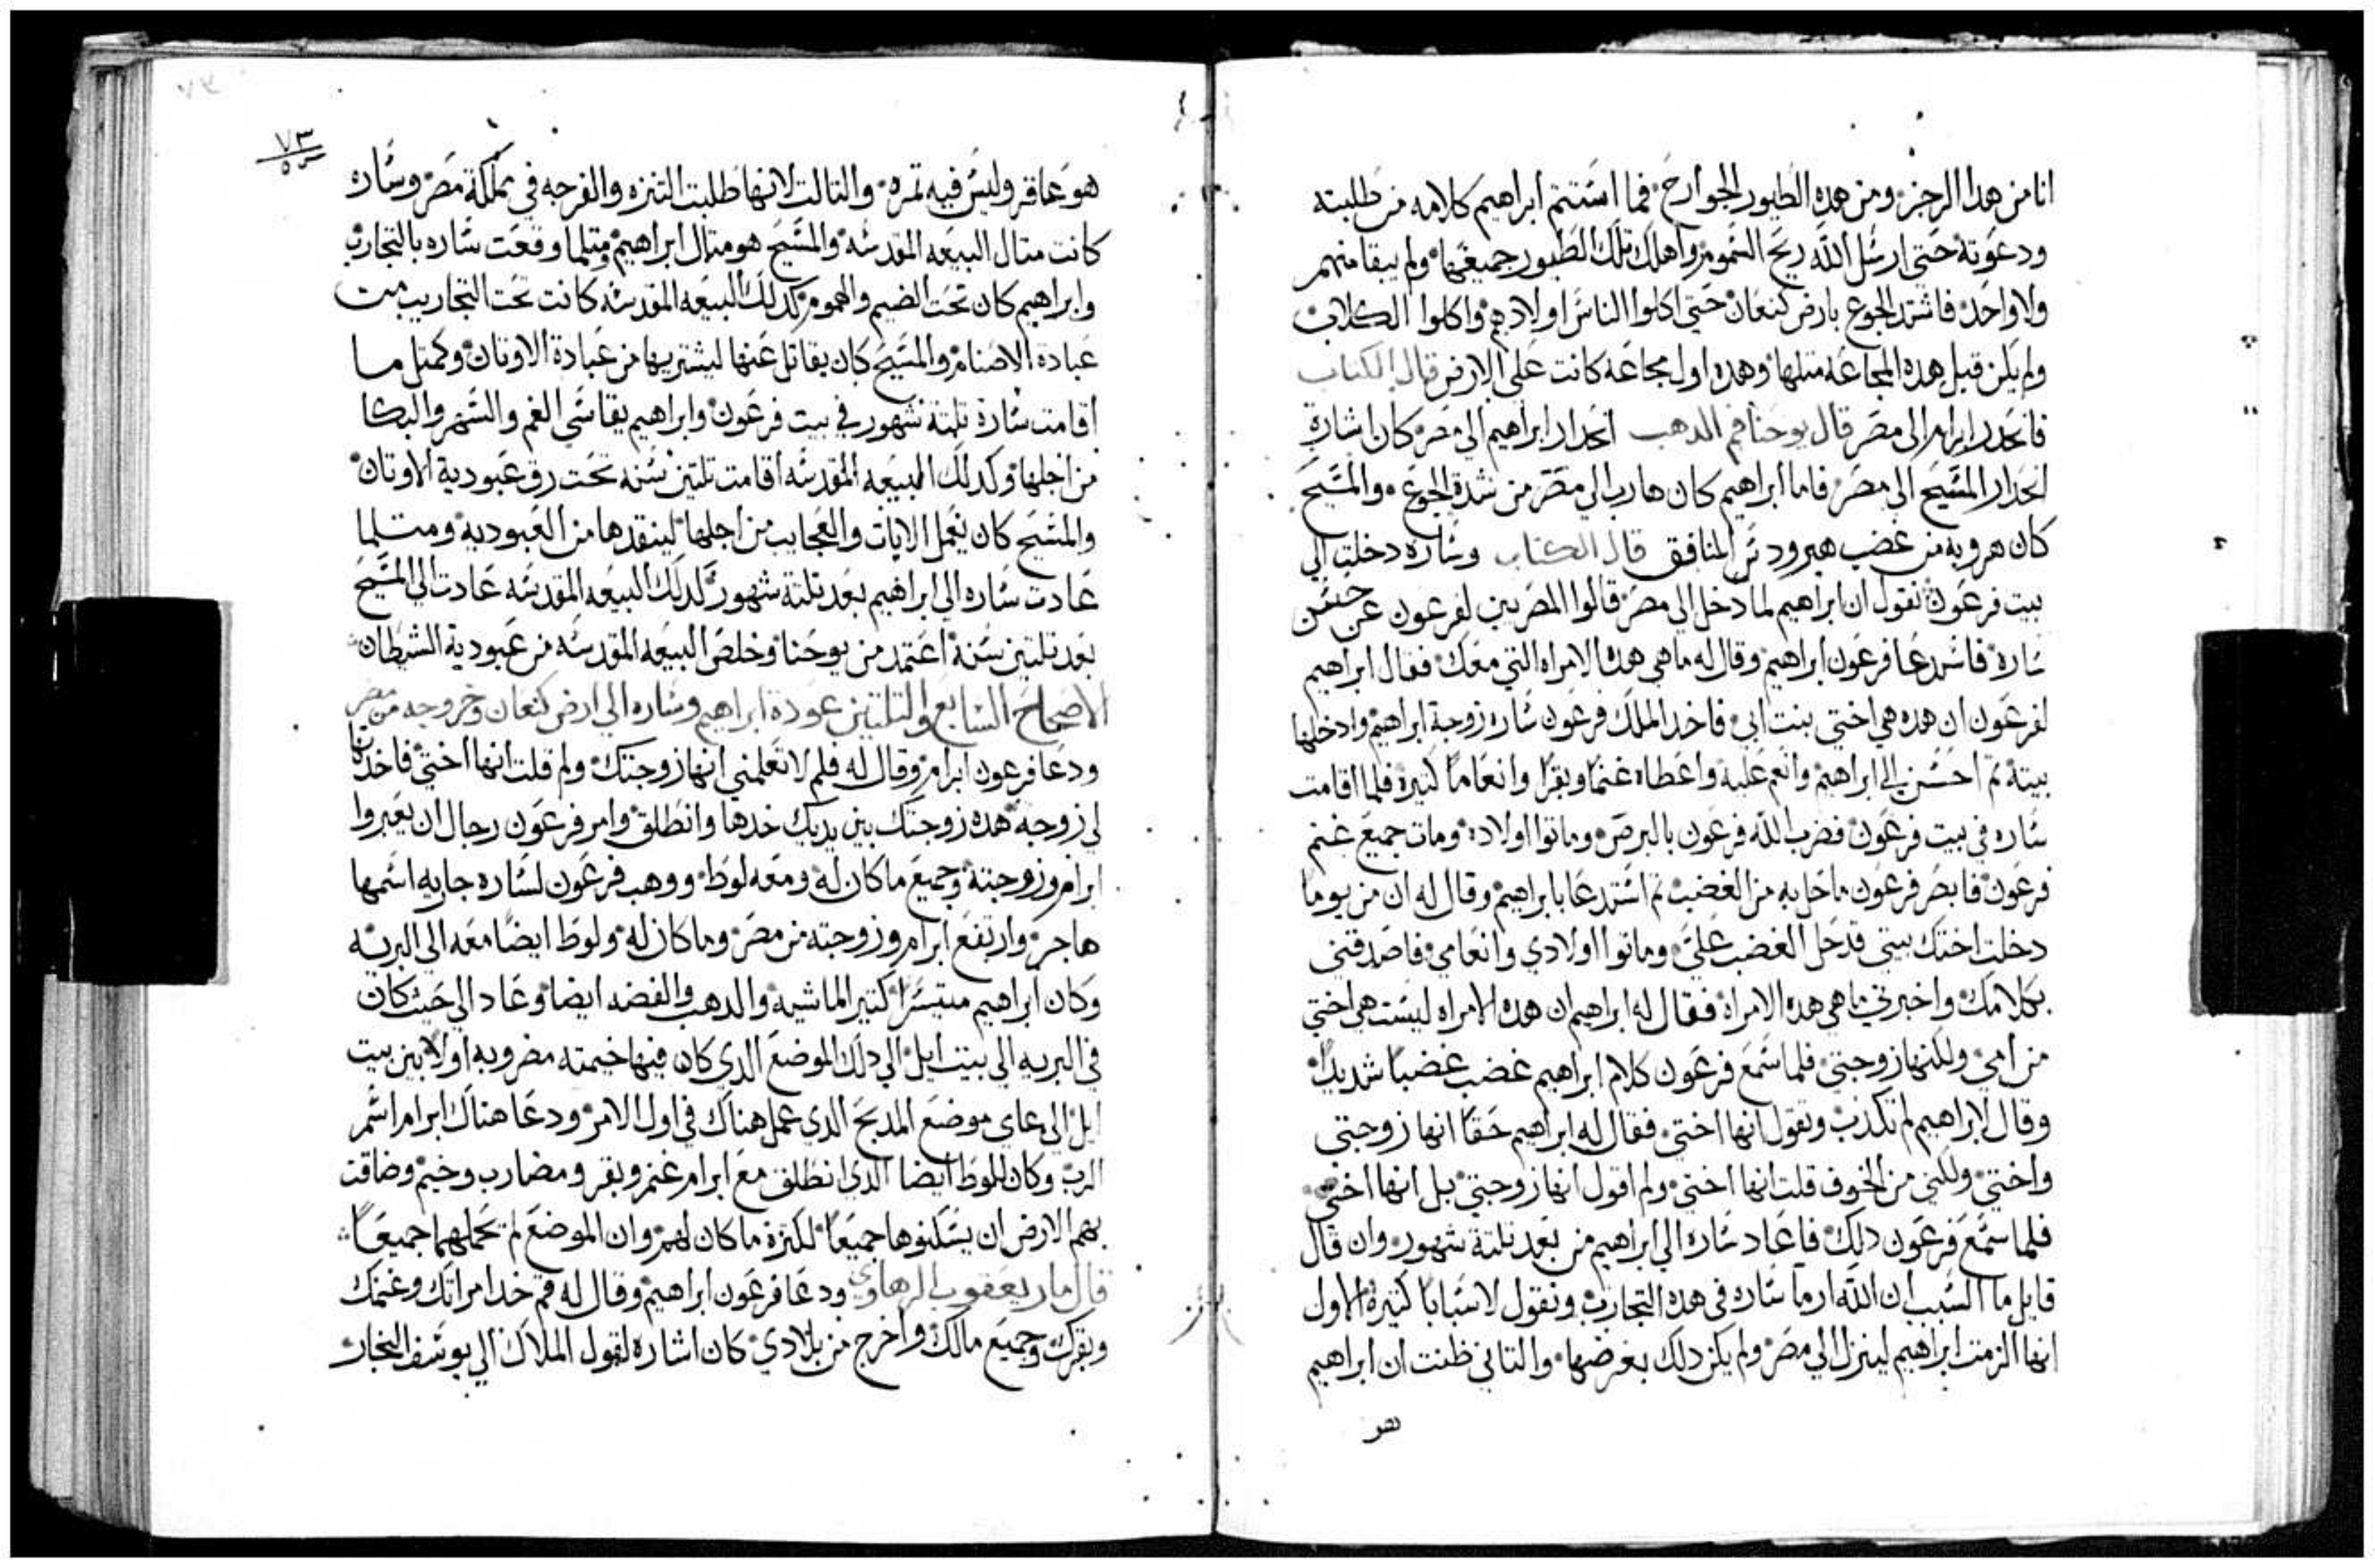 انا من هدا الرجز ومن هده الطيور الجوارح فما استتم ابراهيم كلامه من طلبته
ودعوته حتي ارسل الله ريح السموم واهلك تلك الطيور جميعها ولم يبقا منهم
ولا واحد فاشتد الجوع بارض كنعان حتي اكلوا الناس اولادهم واكلوا الكلاب
ولم يكن قبل هده المجاعه متلها وهده اول مجاعه كانت علي الارض قال الكتاب
فانحدر ابرام الى مصر قال يوحنا فم الدهب انحدار ابراهيم الي مصر كان اشارة
انحدار المسيح الي مصر فاما ابراهيم كان هارب الي مصر من شدة الجوع والمسيح
كان هروبه من غضب هيرودس المنافق قال الكتاب وساره دخلت الي
بيت فرعون نقول ان ابراهيم لما دخل الي مصر قالوا المصريين لفرعون عن حسن
ساره فاستدعا فرعون ابراهيم وقال له ما هي هده الامراه التي معك فقال ابراهيم
لفرعون ان هده هي اختي بنت ابي فاخد الملك فرعون ساره زوجة ابراهيم وادخلها
بيته تم احسن الي ابراهيم وانعم عليه واعطاه غنما وبقرا وانعاما كتيرة فلما اقامت
ساره في بيت فرعون فضرب الله فرعون بالبرص وماتوا اولاده ومات جميع غنم
فرعون فابصر فرعون ما حل به من الغضب تم استدعا بابراهيم وقال له ان من يوما
دخلت اختك بيتي قد حل الغضب علي وماتوا اولادي وانعامي فاصدقني
بكلامك واخبرني ما هي هده الامراة فقال له ابراهيم ان هده الامراه ليست هي اختي
من امي ولكنها زوجتي فلما سمع فرعون كلام ابراهيم غضب غضبا شديدا
وقال لابراهيم لم تكدب وتقول انها اختي فقال له ابراهيم حقا انها زوجتي
واختي ولكني من الخوف قلت انها اختي ولم اقول انها زوجتي بل انها اختي
فلما سمع فرعون دلك فاعاد ساره الي ابراهيم من بعد تلتة شهور وان قال
قايل ما السبب ان الله ارما ساره في هده التجارب ونقول لاسبابا كتيرة الاول
انها الزمت ابراهيم لينزل الي مصر ولم يكن دلك بغرضها والتاني ظنت ان ابراهيم
هو
٧٣
هو عاقر وليس فيه تمره والتالت لانها طلبت التنزه والفرجه في مملكة مصر وساره
كانت متال البيعه المقدسه والمسيح هو متال ابراهيم ومتلما وقعت ساره بالتجارب
وابراهيم كان تحت الضيم والهموم كدلك البيعه المقدسه كانت تحت التجاريب من
عبادة الاصنام والمسيح كان يقاتل عنها ليشتريها من عبادة الاوتان وكمتل ما
اقامت سارة تلتة شهور في بيت فرعون وابراهيم يقاسي الغم والسهر والبكا
من اجلها وكدلك البيعه المقدسه اقامت تلتين سنه تحت رق عبودية الاوتان
والمسيح كان يعمل الايات والعجايب من اجلها لينقدها من العبودية ومتلما
عادت ساره الي ابراهيم بعد تلتة شهور كدلك البيعه المقدسه عادت الي المسيح
بعد تلتين سنة اعتمد من يوحنا وخلص البيعه المقدسه من عبودية الشيطان
الاصحاح السابع والتلتين عودة ابراهيم وساره الي ارض كنعان وخروجه من مصر
ودعا فرعون ابرام وقال له فلم لا تعلمني انها زوجتك ولم قلت انها اختي فاخدتها
لي زوجة هده زوجتك بين يديك خدها وانطلق وامر فرعون رجال ان يعبروا
ابرام وزوجته وجميع ما كان له ومعه لوط ووهب فرعون لساره جاريه اسمها
هاجر وارتفع ابرام وزوجته من مصر وما كان له ولوط ايضا معه الي البريه
وكان ابراهيم متيسرا كتير الماشيه والدهب والفضه ايضا وعاد الي حيت كان
في البريه الي بيت ايل الي دلك الموضع الدي كان فيها خيمته مضروبه اولا بين بيت
ايل الي عاي موضع المدبح الدي عمل هناك في اول الامر ودعا هناك ابرام اسم
الرب وكان للوط ايضا الدي انطلق مع ابرام غنم وبقر ومضارب وخيم وضاقت
بهم الارض ان يسكنوها جميعا لكترة ما كان لهم وان الموضع لم تحملهما جميعا
قال مار يعقوب الرهاوي ودعا فرعون ابراهيم وقال له قم خد امراتك وغنمك
وبقرك وجميع مالك واخرج من بلادي كان اشاره لقول الملاك الي يوسف النجار